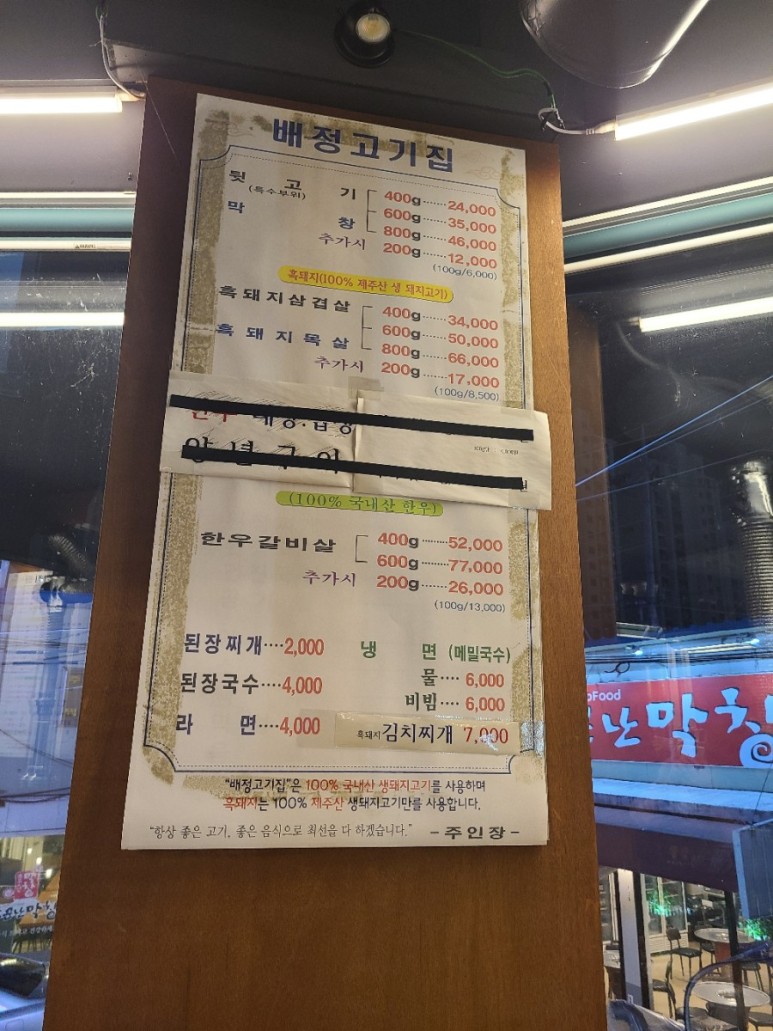 배정고기집
뒷 고 기 400g 24,000
(특수부위) 600g 35,000
막 창 800g 46,000
추가시 200g 12,000
(100g/6,000)
흑돼지(100% 제주산 생 돼지고기)
흑돼지삼겹살 400g 34,000
600g 50,000
흑돼지목살 800g 66,000
추가시 200g 17,000
(100g/8,500)
(100% 국내산 한우)
한우갈비살 400g 52,000
600g 77,000
추가시 200g 26,000
(100g/13,000)
된장찌개 2,000 냉 면 (메밀국수)
된장국수 4,000 물 6,000
비빔 6,000
라 면 4,000 흑돼지 김치찌개 7,000
"배정고기집"은 100% 국내산 생돼지고기를 사용하며
흑돼지는 100% 제주산 생돼지고기만를 사용합니다.
"항상 좋은 고기, 좋은 음식으로 최선을 다 하겠습니다." - 주인장 -
Food
난막창